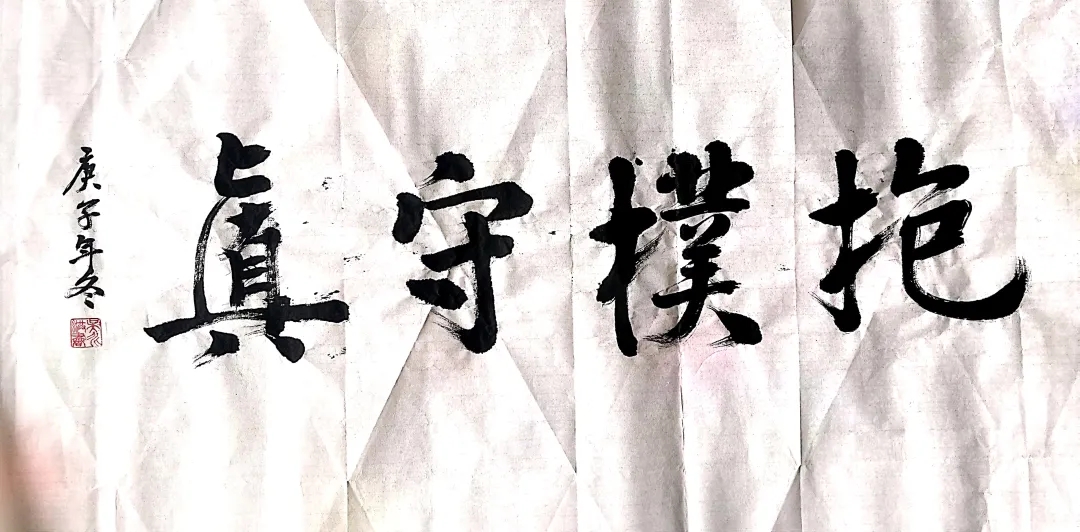 抱樸守真
庚子年冬